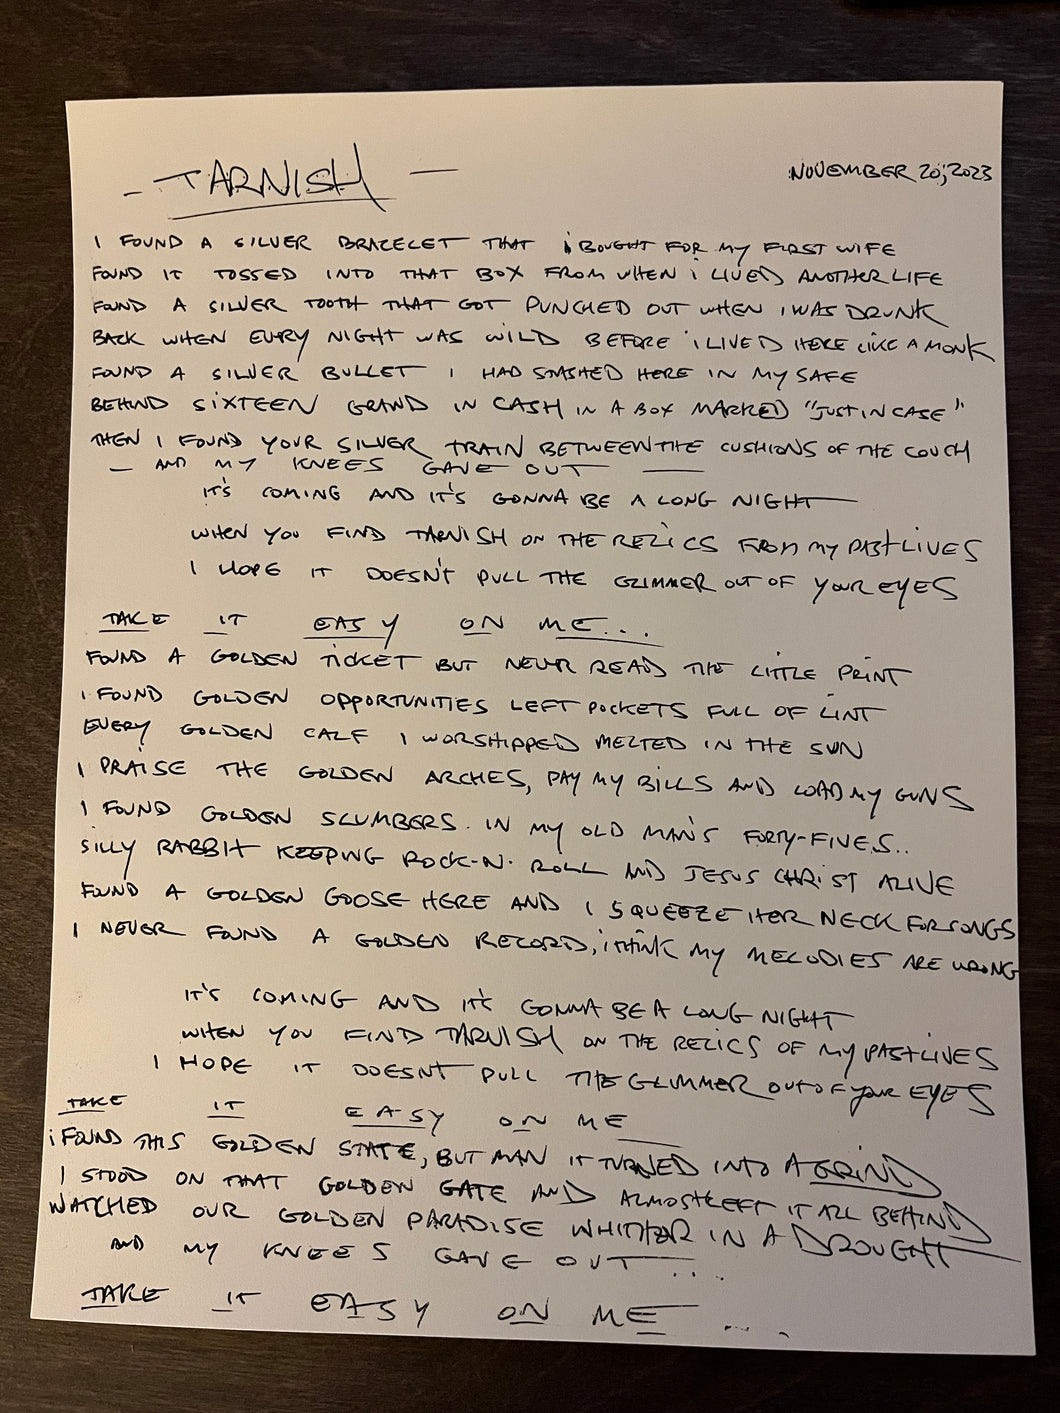 - TARNISH -
NOVEMBER 20, 2023
I FOUND A SILVER BRACELET THAT i BOUGHT FOR MY FIRST WIFE
FOUND IT TOSSED INTO THAT BOX FROM WHEN i LIVED ANOTHER LIFE
FOUND A SILVER TOOTH THAT GOT PUNCHED OUT WHEN I WAS DRUNK
BACK WHEN EVERY NIGHT WAS WILD BEFORE i LIVED HERE LIKE A MONK
FOUND A SILVER BULLET I HAD STASHED HERE IN MY SAFE
BEHIND SIXTEEN GRAND IN CASH IN A BOX MARKED "JUST IN CASE"
THEN I FOUND YOUR SILVER TRAIN BETWEEN THE CUSHIONS OF THE COUCH
— AND MY KNEES GAVE OUT —
IT'S COMING AND IT'S GONNA BE A LONG NIGHT
WHEN YOU FIND TARNISH ON THE RELICS FROM MY PAST LIVES
I HOPE IT DOESN'T PULL THE GLIMMER OUT OF YOUR EYES
TAKE IT EASY ON ME...
FOUND A GOLDEN TICKET BUT NEVER READ THE LITTLE PRINT
I FOUND GOLDEN OPPORTUNITIES LEFT POCKETS FULL OF LINT
EVERY GOLDEN CALF I WORSHIPPED MELTED IN THE SUN
I PRAISE THE GOLDEN ARCHES, PAY MY BILLS AND LOAD MY GUNS
I FOUND GOLDEN SLUMBERS IN MY OLD MAN'S FORTY-FIVES..
SILLY RABBIT KEEPING ROCK-N-ROLL AND JESUS CHRIST ALIVE
FOUND A GOLDEN GOOSE HERE AND I SQUEEZE HER NECK FOR SONGS
I NEVER FOUND A GOLDEN RECORD, i THINK MY MELODIES ARE WRONG
IT'S COMING AND IT'S GONNA BE A LONG NIGHT
WHEN YOU FIND TARNISH ON THE RELICS OF MY PAST LIVES
I HOPE IT DOESN'T PULL THE GLIMMER OUT OF YOUR EYES
TAKE IT EASY ON ME
i FOUND THIS GOLDEN STATE, BUT MAN IT TURNED INTO A GRIND
I STOOD ON THAT GOLDEN GATE AND ALMOST LEFT IT ALL BEHIND
WATCHED OUR GOLDEN PARADISE WHITHER IN A DROUGHT
AND MY KNEES GAVE OUT....
TAKE IT EASY ON ME ....